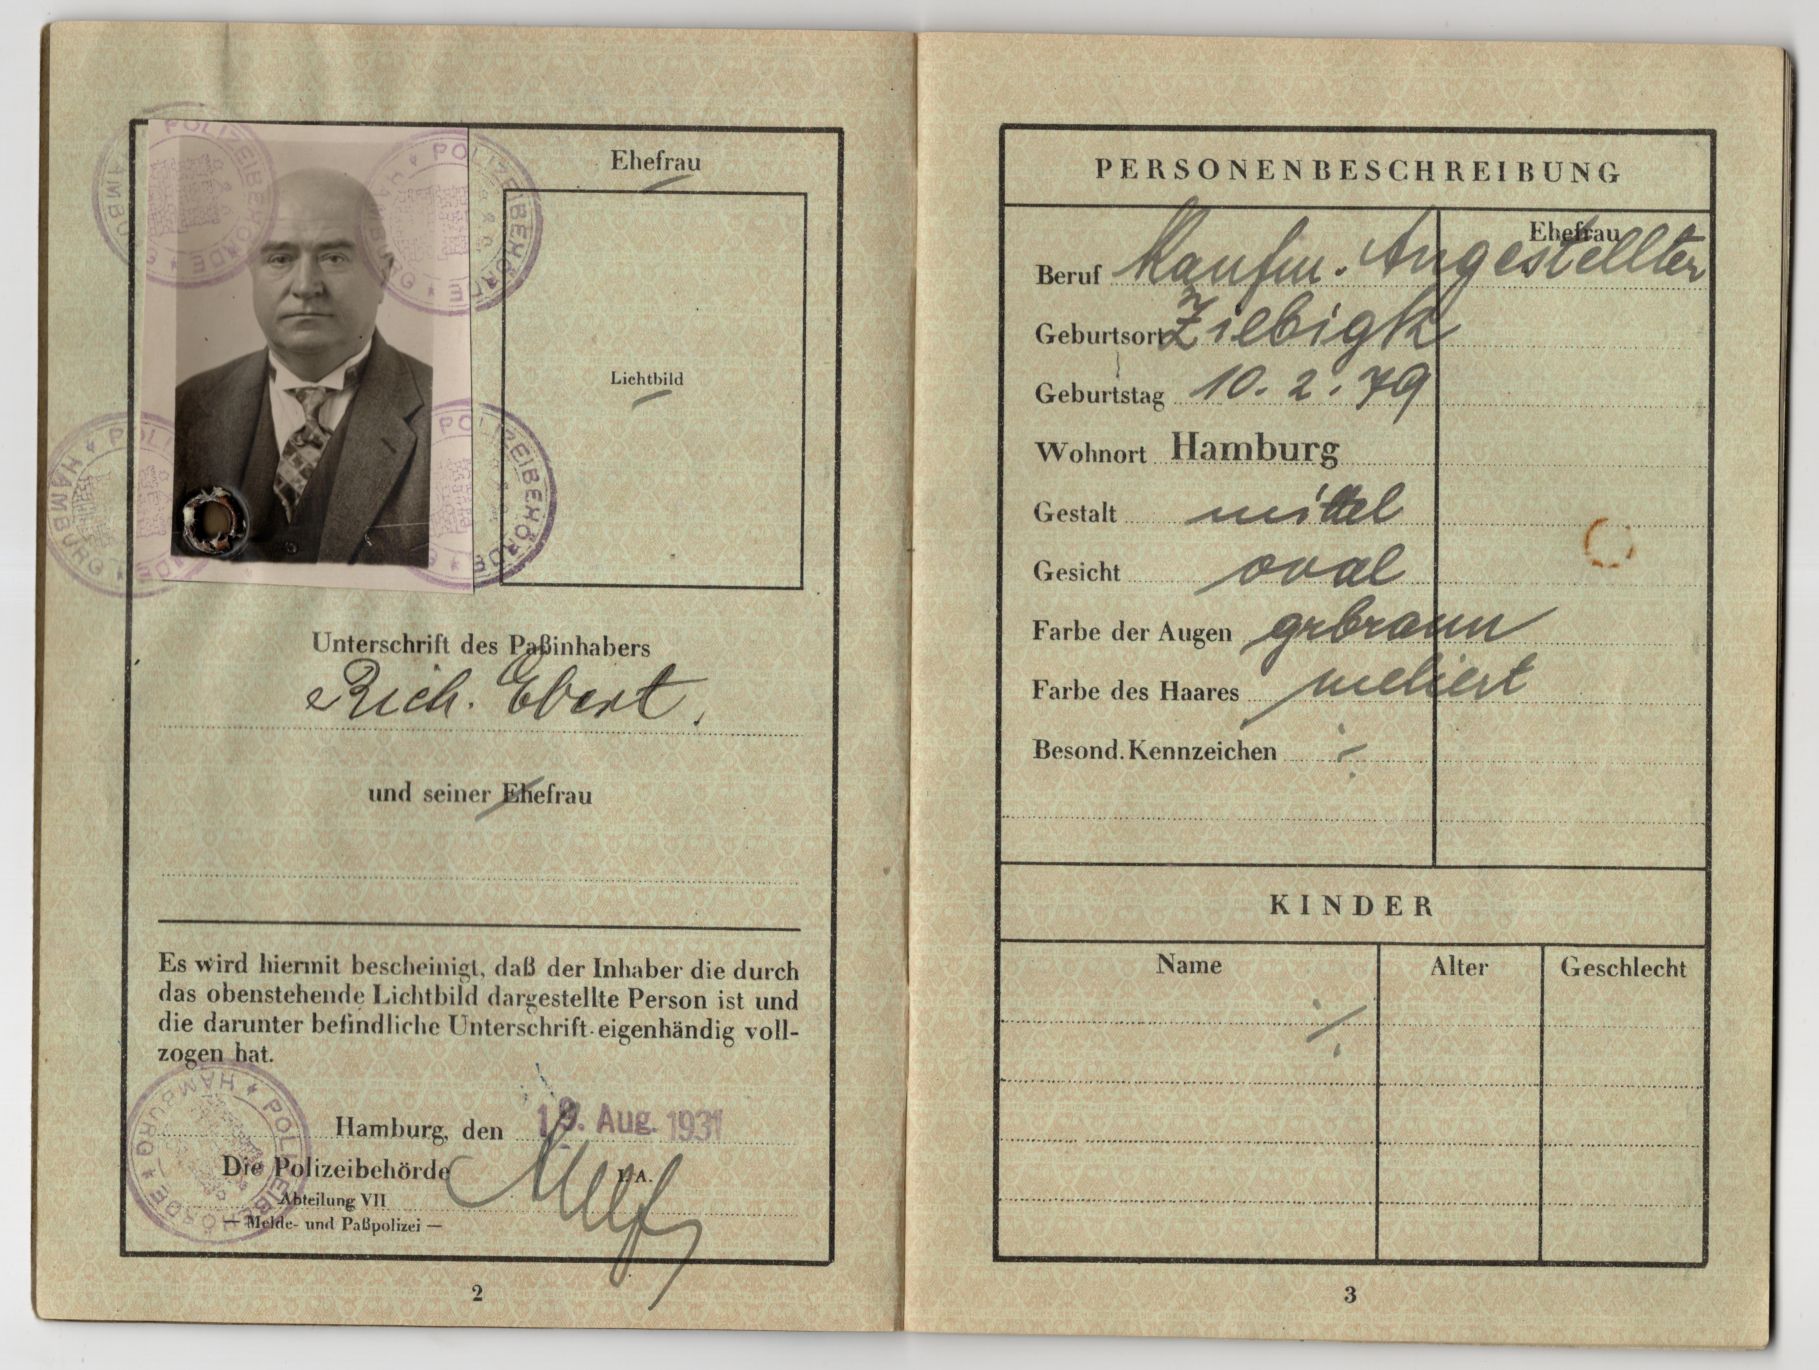 Ehefrau
Lichtbild
POLIZEIBEHÖRDE * HAMBURG *
Unterschrift des Paßinhabers
Rich. Ebert.
und seiner Ehefrau
Es wird hiermit bescheinigt, daß der Inhaber die durch
das obenstehende Lichtbild dargestellte Person ist und
die darunter befindliche Unterschrift eigenhändig voll-
zogen hat.
Hamburg, den 19. Aug. 1931
Die Polizeibehörde I. A.
Abteilung VII
— Melde- und Paßpolizei —
POLIZEIBEHÖRDE * HAMBURG *
2
PERSONENBESCHREIBUNG
Ehefrau
Beruf Kaufm. Angestellter
Geburtsort Ziebigk
Geburtstag 10. 2. 79
Wohnort Hamburg
Gestalt mittel
Gesicht oval
Farbe der Augen grbraun
Farbe des Haares meliert
Besond. Kennzeichen ./.
KINDER
Name Alter Geschlecht
./.
3